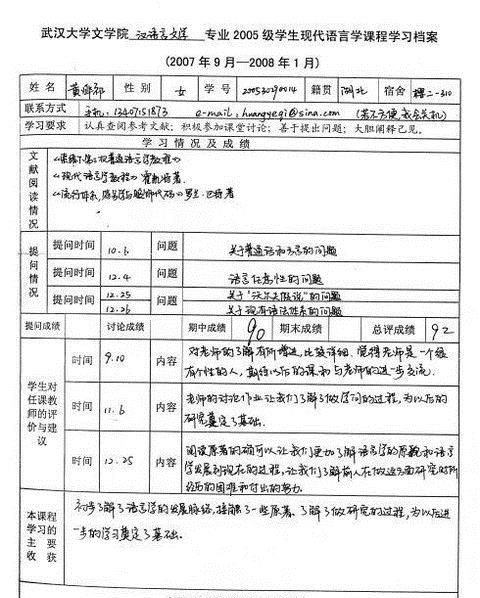 武汉大学文学院 汉语言文学 专业2005级学生现代语言学课程学习档案
(2007年9月—2008年1月)
姓名 黄 性别 女 学号 200530 籍贯 湖北 宿舍 樱二-310
联系方式 手机:13407151873 e-mail:huangyeqi@sina.com (若不方便,我会关机)
学习要求 认真查阅参考文献;积极参加课堂讨论;善于提出问题;大胆阐释己见。
学习情况及成绩
文献阅读情况
《普通语言学教程》
《现代语言学教程》霍凯特著
《流行体系,符号学与服饰代码》罗兰.巴特著
提问情况
提问时间 10.6 问题 关于普通话和方言的问题
提问时间 12.4 问题 语言任意性的问题
提问时间 12.25 问题 关于"沃尔夫假说"的问题
12.26 关于现有语法体系的问题
提问成绩 讨论成绩 期中成绩 90 期末成绩 总评成绩 92
学生对任课教师的评价与建议
时间 9.10 内容 对老师的了解有所增进,比较详细,觉得老师是一个很
有个性的人,期待以后的课和与老师的进一步交流.
时间 11.6 内容 老师的讨论作业让我们了解了做学问的过程,为以后的
研究奠定了基础.
时间 12.25 内容 阅读原著的确可以让我们更加了解语言学的原貌和语言
学发展到现在的过程,让我们了解前人在做这方面研究时所
经历的困难和付出的努力.
本课程学习的主要收获
初步了解了语言学的发展脉络,接触了一些原著.了解了做研究的过程,为以后进
一步的学习奠定了基础.